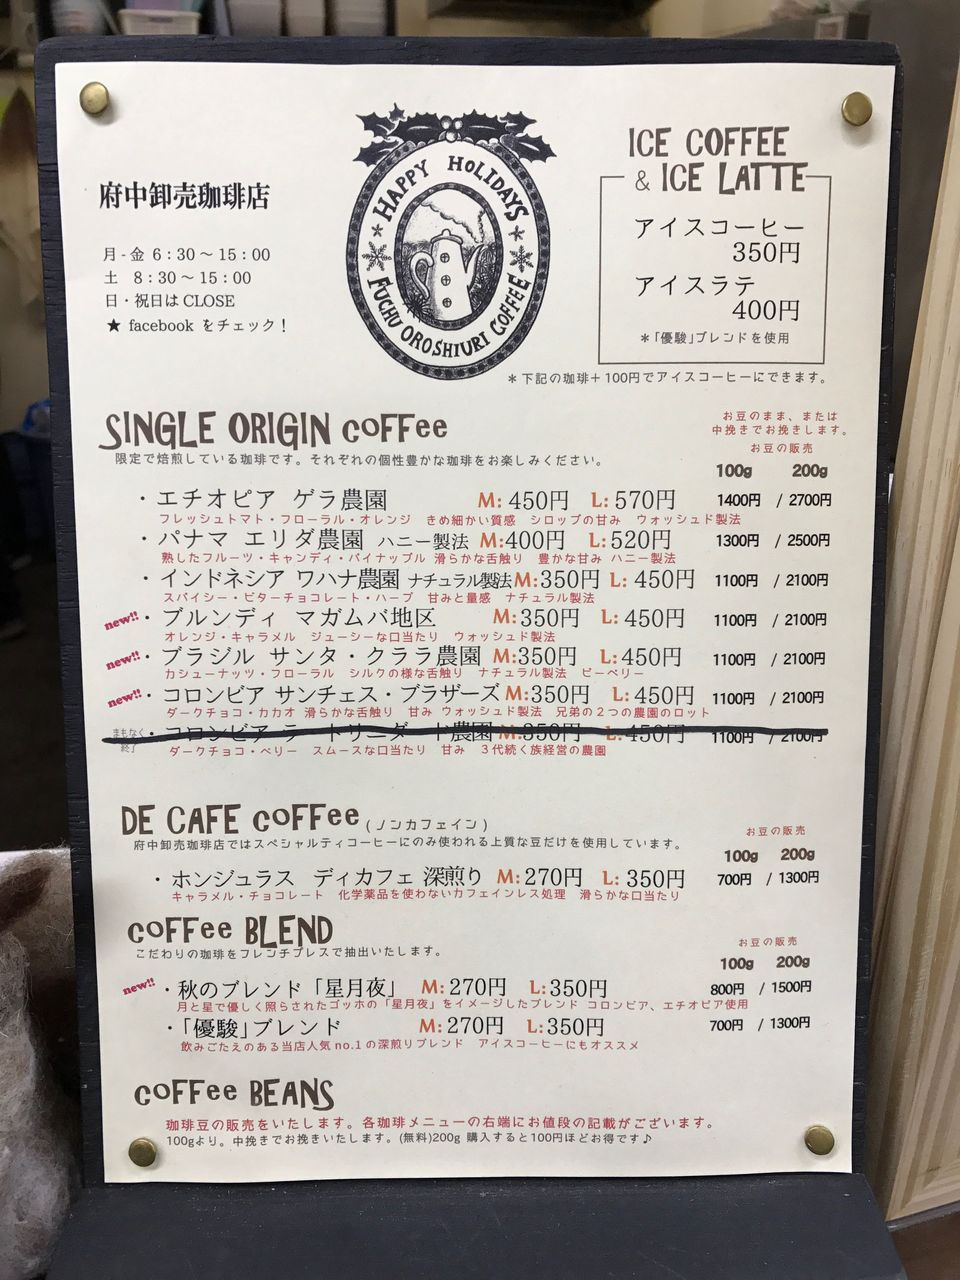 府中卸売珈琲店
月-金 6:30～15:00
土 8:30～15:00
日・祝日は CLOSE
★ facebook をチェック！
HAPPY HOLIDAYS
FUCHU OROSHIURI COFFEE
ICE COFFEE
& ICE LATTE
アイスコーヒー
350円
アイスラテ
400円
＊「優駿」ブレンドを使用
＊下記の珈琲＋100円でアイスコーヒーにできます。
SINGLE ORIGIN COFFee
限定で焙煎している珈琲です。それぞれの個性豊かな珈琲をお楽しみください。
お豆のまま、または
中挽きでお挽きします。
お豆の販売
100g 200g
・エチオピア ゲラ農園 M: 450円 L: 570円 1400円 / 2700円
フレッシュトマト・フローラル・オレンジ きめ細かい質感 シロップの甘み ウォッシュド製法
・パナマ エリダ農園 ハニー製法 M:400円 L: 520円 1300円 / 2500円
熟したフルーツ・キャンディ・パイナップル 滑らかな舌触り 豊かな甘み ハニー製法
・インドネシア ワハナ農園 ナチュラル製法 M:350円 L: 450円 1100円 / 2100円
スパイシー・ビターチョコレート・ハーブ 甘みと量感 ナチュラル製法
new!! ・ブルンディ マガムバ地区 M:350円 L:450円 1100円 / 2100円
オレンジ・キャラメル ジューシーな口当たり ウォッシュド製法
new!! ・ブラジル サンタ・クララ農園 M:350円 L:450円 1100円 / 2100円
カシューナッツ・フローラル シルクの様な舌触り ナチュラル製法 ピーベリー
new!! ・コロンビア サンチェス・ブラザーズ M:350円 L:450円 1100円 / 2100円
ダークチョコ・カカオ 滑らかな舌触り 甘み ウォッシュド製法 兄弟の２つの農園のロット
まもなく終了 ・コロンビア ラ・トリニダード農園 M:350円 L:450円 1100円 / 2100円
ダークチョコ・ベリー スムースな口当たり 甘み ３代続く族経営の農園
DE CAFE COFFee (ノンカフェイン)
府中卸売珈琲店ではスペシャルティコーヒーにのみ使われる上質な豆だけを使用しています。
お豆の販売
100g 200g
・ホンジュラス ディカフェ 深煎り M:270円 L: 350円 700円 / 1300円
キャラメル・チョコレート 化学薬品を使わないカフェインレス処理 滑らかな口当たり
COFFee BLEND
こだわりの珈琲をフレンチプレスで抽出いたします。
お豆の販売
100g 200g
new!! ・秋のブレンド「星月夜」 M: 270円 L:350円 800円 / 1500円
月と星で優しく照らされたゴッホの「星月夜」をイメージしたブレンド コロンビア、エチオピア使用
・「優駿」ブレンド M: 270円 L:350円 700円 / 1300円
飲みごたえのある当店人気 no.1 の深煎りブレンド アイスコーヒーにもオススメ
COFFee BEANS
珈琲豆の販売をいたします。各珈琲メニューの右端にお値段の記載がございます。
100gより。中挽きでお挽きいたします。(無料)200g 購入すると100円ほどお得です♪